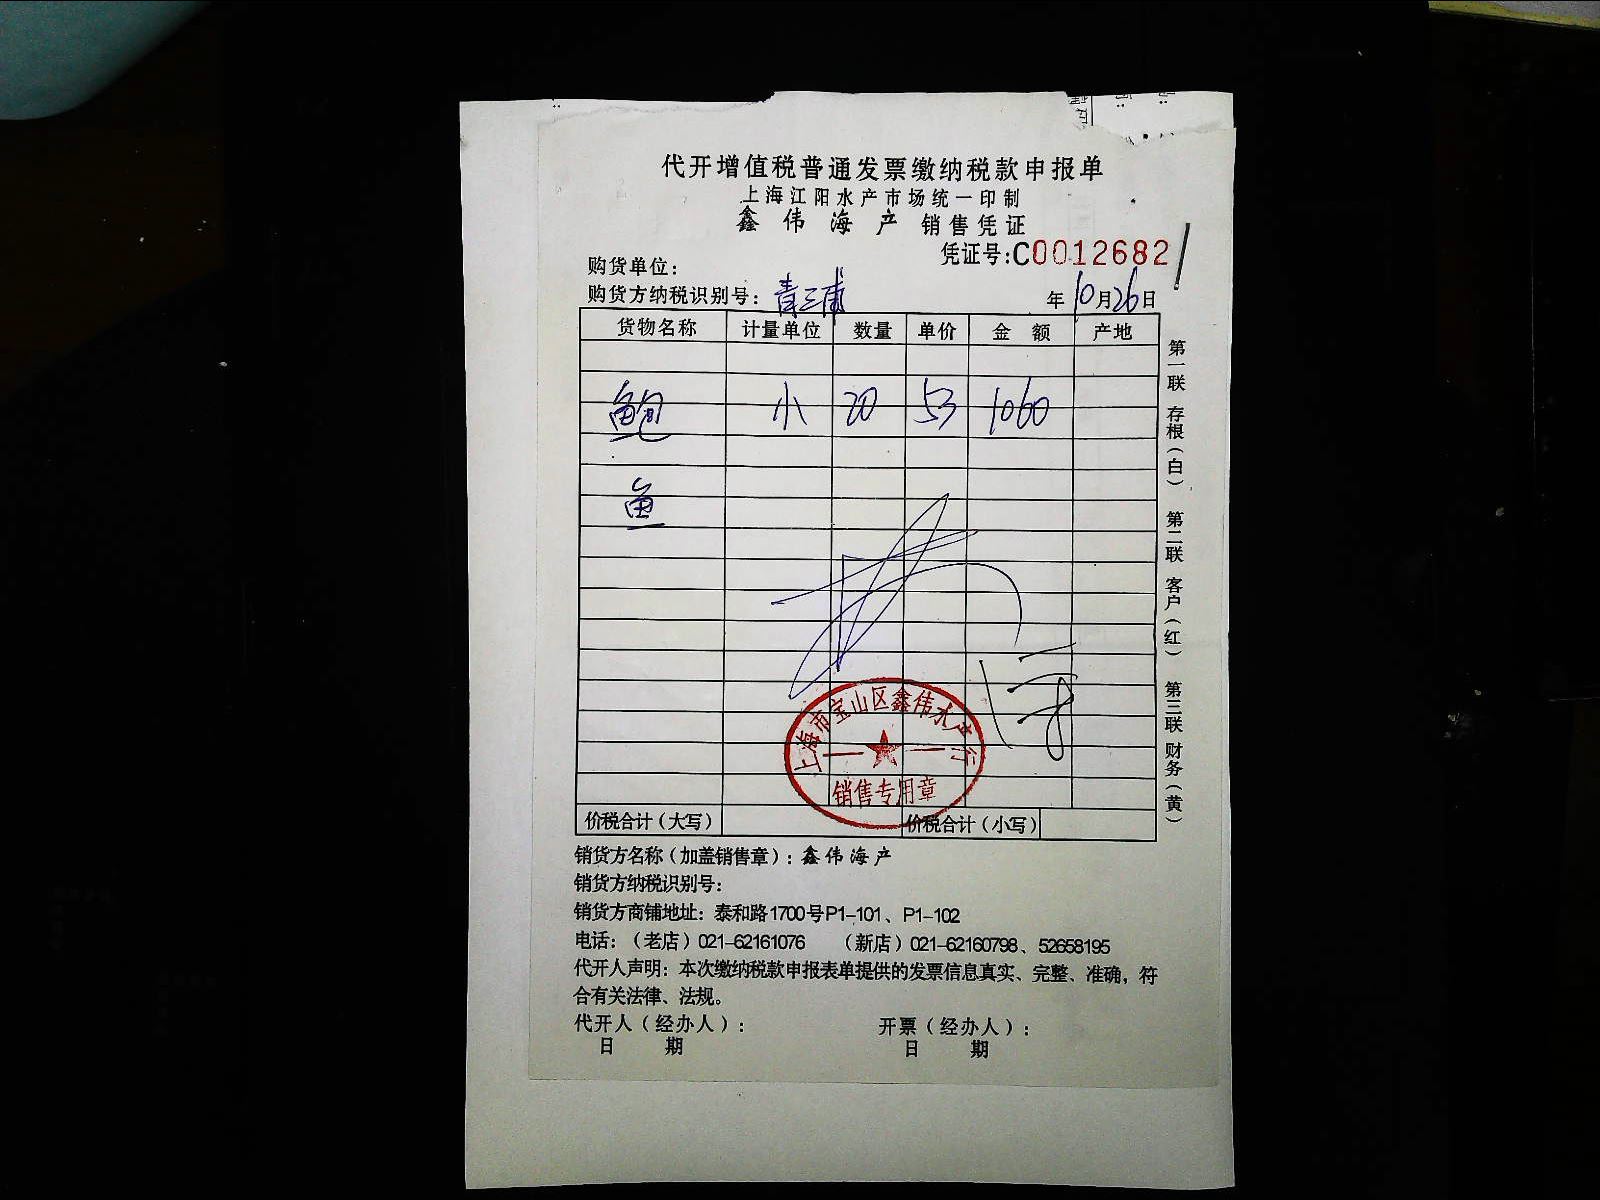 代开增值税普通发票缴纳税款申报单
上海江阳水产市场统一印制
鑫伟海产 销售凭证
凭证号:C0012682
购货单位:
购货方纳税识别号: 青三浦
年10月26日
货物名称 计量单位 数量 单价 金额 产地
鲍 小 20 53 1060
鱼
上海市宝山区鑫伟水产行
销售专用章
价税合计(大写) 价税合计(小写)
第一联 存根(白) 第二联 客户(红) 第三联 财务(黄)
销货方名称(加盖销售章):鑫伟海产
销货方纳税识别号:
销货方商铺地址:泰和路1700号P1-101、P1-102
电话:(老店)021-62161076 (新店)021-62160798、52658195
代开人声明:本次缴纳税款申报表单提供的发票信息真实、完整、准确,符
合有关法律、法规。
代开人(经办人): 开票(经办人):
日期 日期